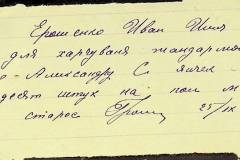 Ерошенко Иван Илля
для харчуваня жандармо
о-Александру С яичек
десят штук на пол м
старос 25/IX